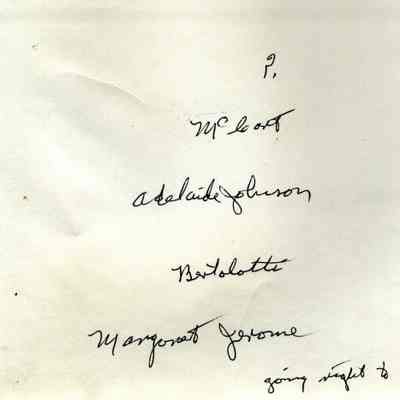 ?.
McCort
Adelaide Johnson
Bertolotti
Margaret Jerome
going right to